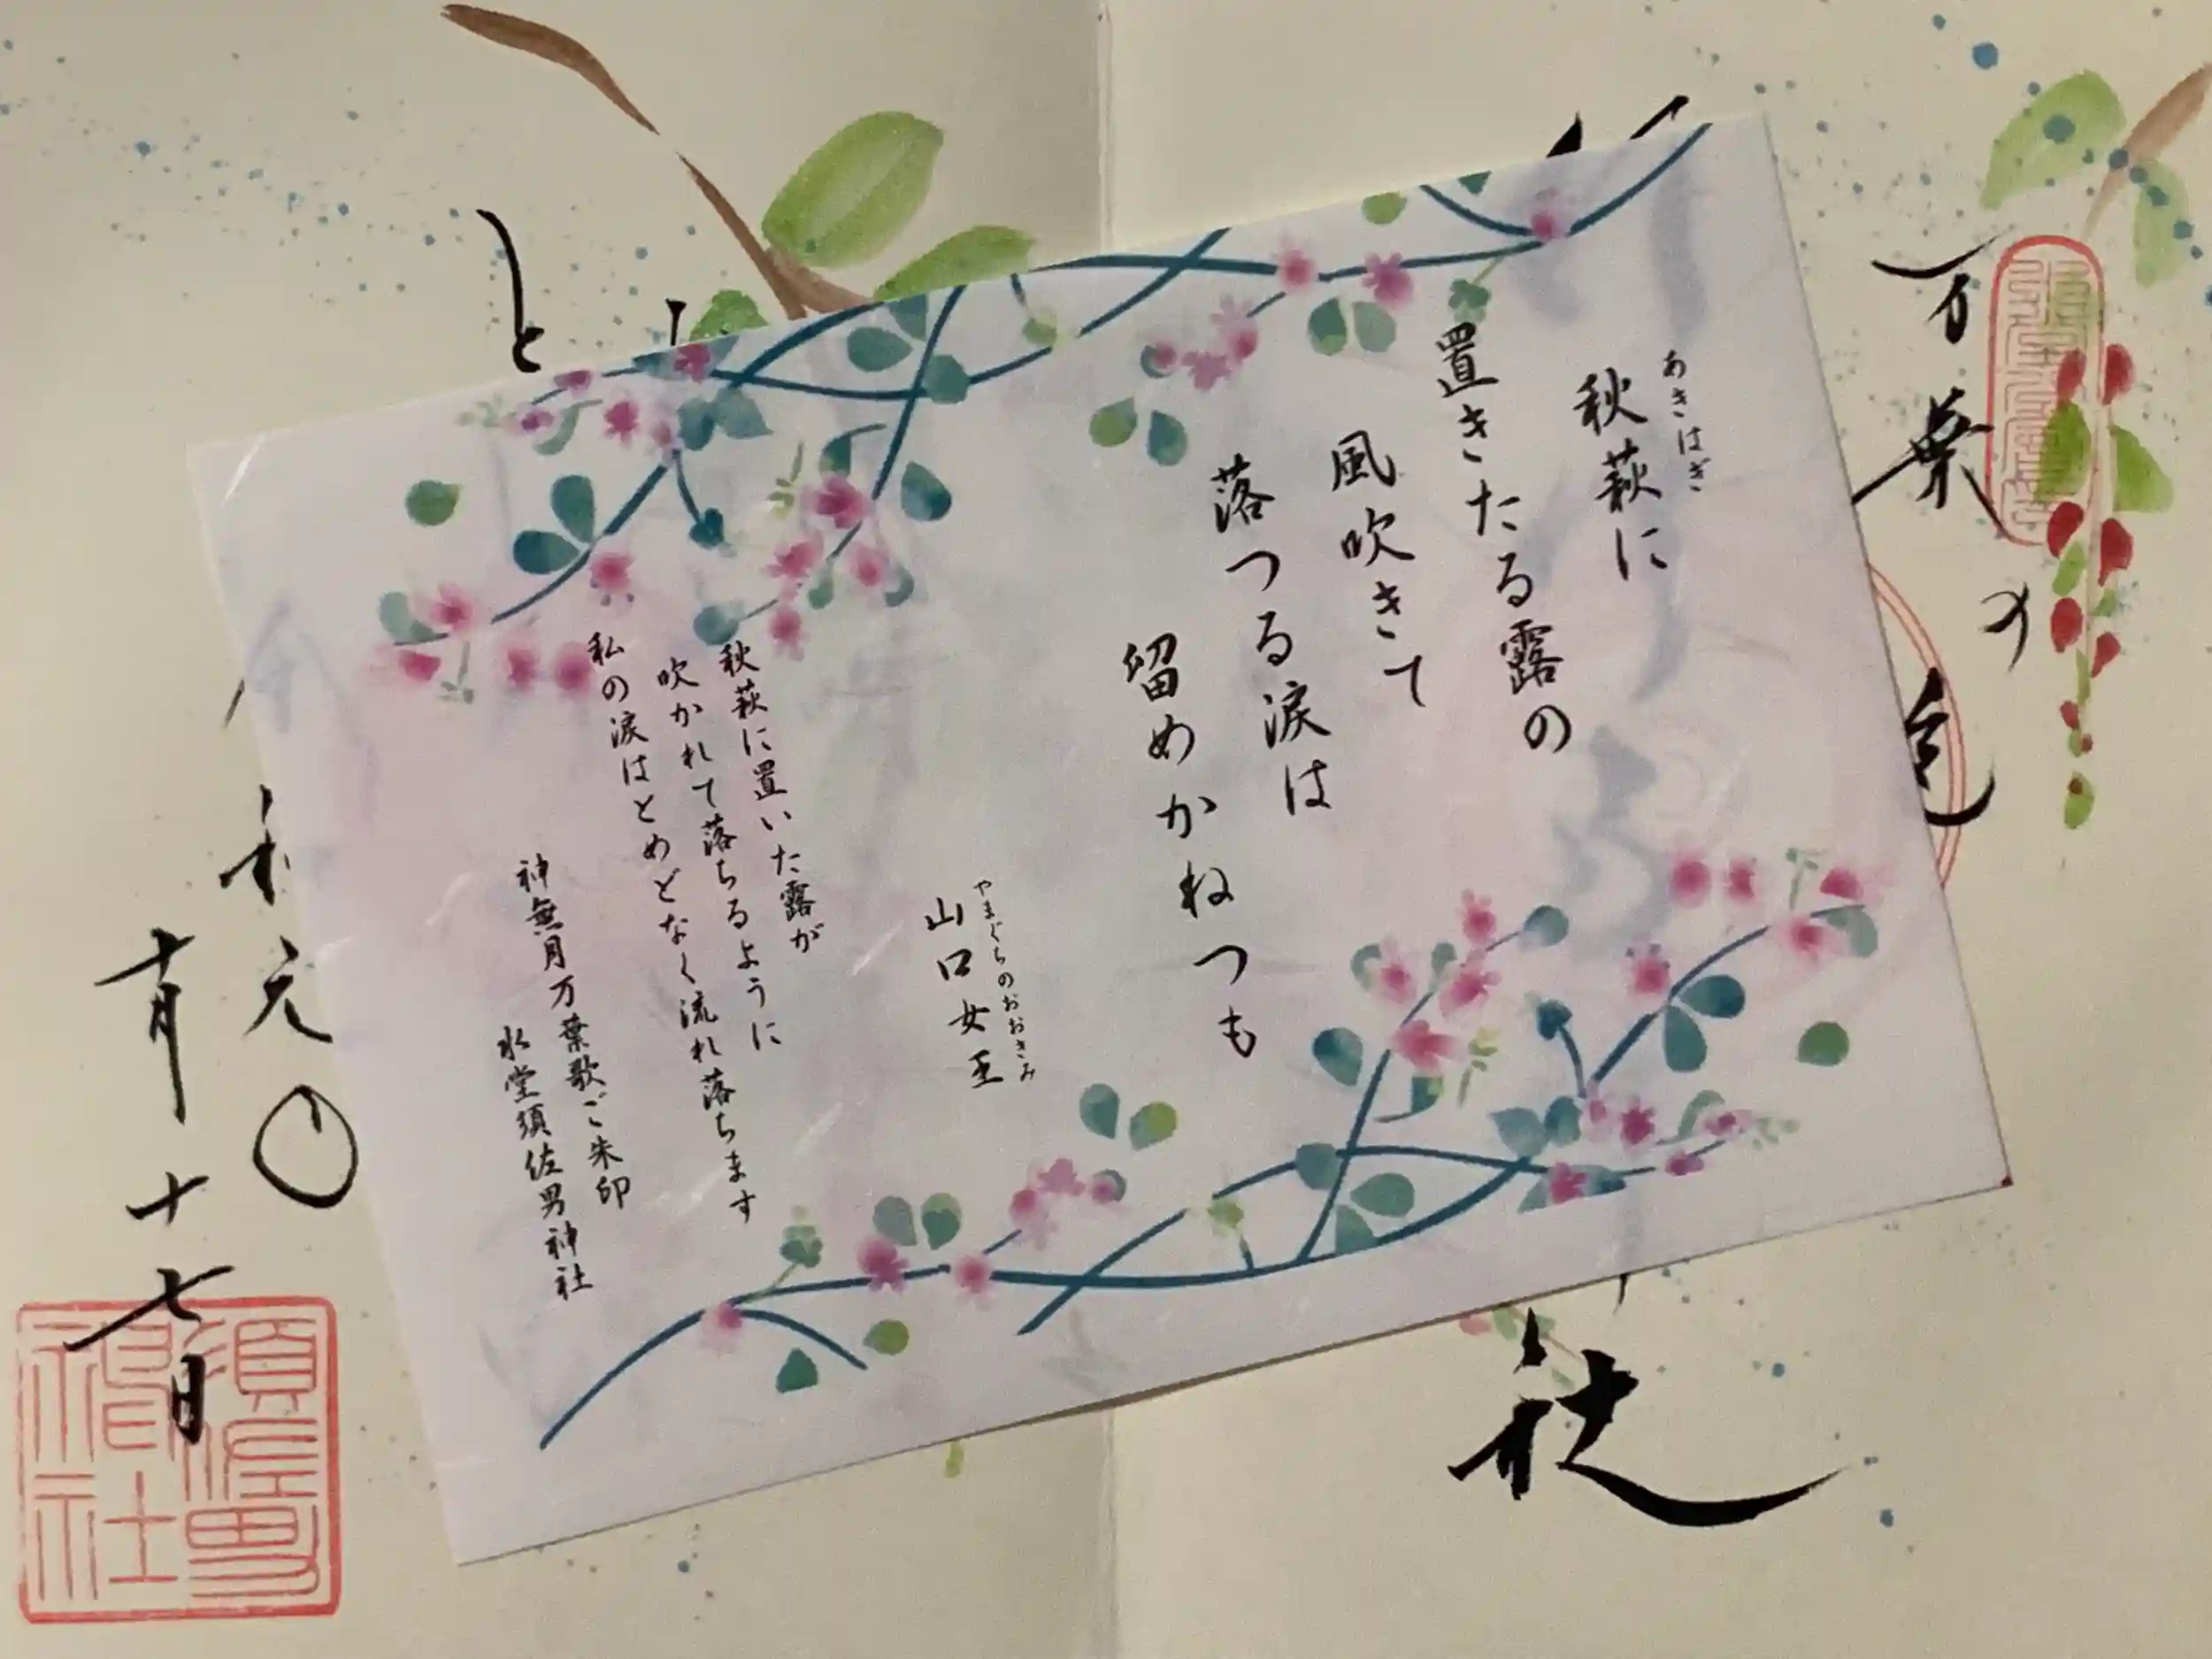 秋萩に
あきはぎ
置きたる露の
風吹きて
落つる涙は
留めかねつも
やまぐちのおおきみ
山口女王
秋萩に置いた露が
吹かれて落ちるように
私の涙はとめどなく流れ落ちます
神無月万葉歌ご朱印
水堂須佐男神社
万葉の
社
と
和元
十月十七日
須佐男
神社